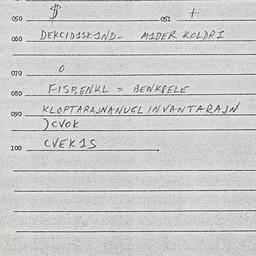 050 $ 051 +
060 DEKCIDISKIND- MIDER KOLDRI
070 0
080 FISBENKL = BENKPELE
090 KLOPTARAJNANUGL INVANTARAJN
)CVOK
100 CVEK1S